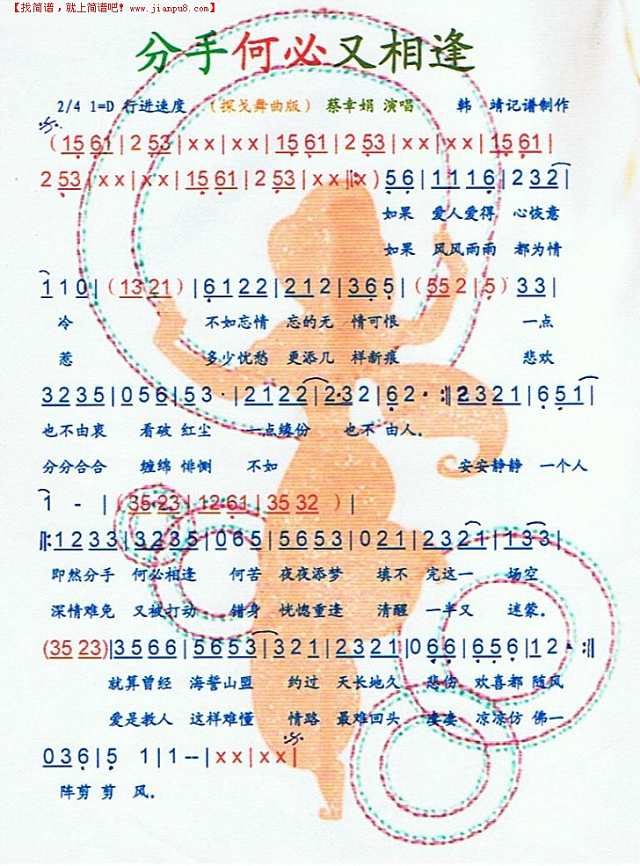 【找简谱，就上简谱吧！www.jianpu8.com】
分手何必又相逢
2/4 1=D 行进速度 （探戈舞曲版） 蔡幸娟 演唱 韩 靖记谱制作
(15 61|2 53|xx|xx|15 61|2 53|xx|xx|15 61|
2 53|xx|xx|15 61|2 53|xx|xx|:x) 56|1116|232|
如果 爱人爱得 心恢意
如果 风风雨雨 都为情
110|(13 21)|6122|212|365|(55 2|5)|33|
冷 不如忘情 忘的无 情可恨 一点
惹 多少忧愁 更添几 样新痕 悲欢
3235|056|53·|2122|2·32|62·:||2321|651|
也不由衷 看破 红尘 一点缘份 也不 由人.
分分合合 缠绵 悱恻 不如 安安静静 一个人
1 - |(35·23|12·61|35 32)|
||:1233|3235|065|5653|021|2321|133|
即然分手 何必相逢 何苦 夜夜添梦 填不 完这一 场空
深情难免 又被打动 错身 恍惚重逢 清醒 一半又 迷蒙.
(35 23)|3566|5653|321|2321|066|656|12·:||
就算曾经 海誓山盟 约过 天长地久 悲伤 欢喜都 随风
爱是教人 这样难懂 情路 最难回头 凄凄 凉凉仿 佛一
036|5 1|1--|xx|xx|
阵剪 剪 风.